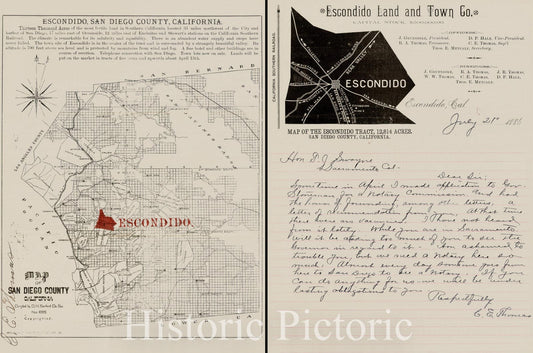 ESCONDIDO, SAN DIEGO COUNTY, CALIFORNIA.
Thirteen Thousand Acres of the most fertile land in Southern California located 31 miles northwest of the City and
harbor of San Diego, 17 miles east of Oceanside, 12 miles east of Encinitas and Stewarts stations on the California Southern
Railroad. The climate is remarkable for its salubrity and equability. There is an abundant water supply and crops have
never failed. The town site of Escondido is in the center of the tract and is surrounded by a strangely beautiful valley. Its
altitude is 700 feet above sea level and is protected by mountains from wind and fog. A fine hotel and other buildings are in
course of erection. Temptation Town lots now on sale. Lands will be
put on the market in tracts of five acres and upwards about April 15th.
SAN BERNARD
LOS ANGELES COUNTY
ESCONDIDO.
MAP
OF
SAN DIEGO COUNTY
CALIFORNIA
Nov 1885
Copyrighted.
LOWER CAL
CALIFORNIA SOUTHERN RAILROAD.
Escondido Land and Town Co.
CAPITAL STOCK,
J. Gruendike, President.
D. P. Hale, Vice-President.
R. A. Thomas, Treasurer.
C. E. Thomas, Sup't
Thos. E. Metcalf, Secretary.
J. Gruendike,
R. A. Thomas,
J. R. Thomas,
W. W. Thomas,
C. E. Thomas,
D. P. Hale,
Thos. E. Metcalf
ESCONDIDO
MAP OF THE ESCONDIDO TRACT, 12,814 ACRES.
SAN DIEGO COUNTY, CALIFORNIA.
Escondido, Cal
July 21st 1886
Sacramento Cal.
Dear Sir:
Sometime in April I made application to Gov.
Stoneman for a Notary Commission and had
the honor of forwarding, among other letters, a
letter of recommendation from you. At that time
there was no vacancy. I have not heard
from it lately. While you are in Sacramento
will it be asking too much of you to see the
Governor in regard to it. I am ashamed to
trouble you, but we need a Notary here so
much. Almost every day someone goes from
here to San Diego to see a Notary. If you
can do anything for us we will be under
lasting obligations to you.
Respectfully
C. E. Thomas
Historic Pictoric